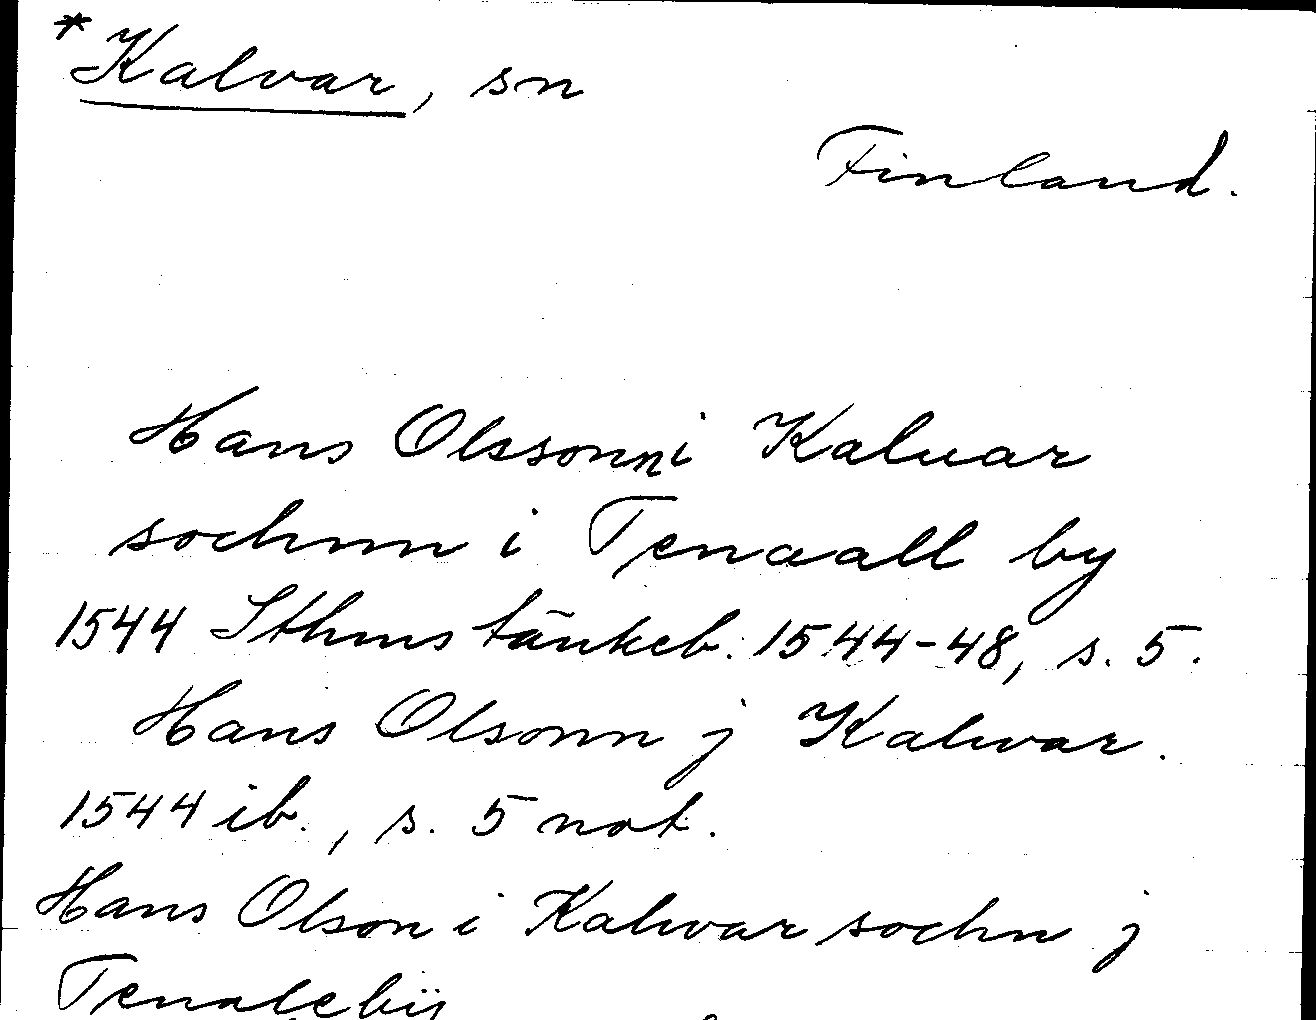 *Kalvar, sn
Finland.
Hans Olssonn i Kaluar
sochnn i Tenaall by
1544 Sthms tänkeb. 1544-48, s. 5.
Hans Olsonn j Kalwar.
1544 ib., s. 5 not.
Hans Olson i Kalwar sochn j
Tenalebÿ